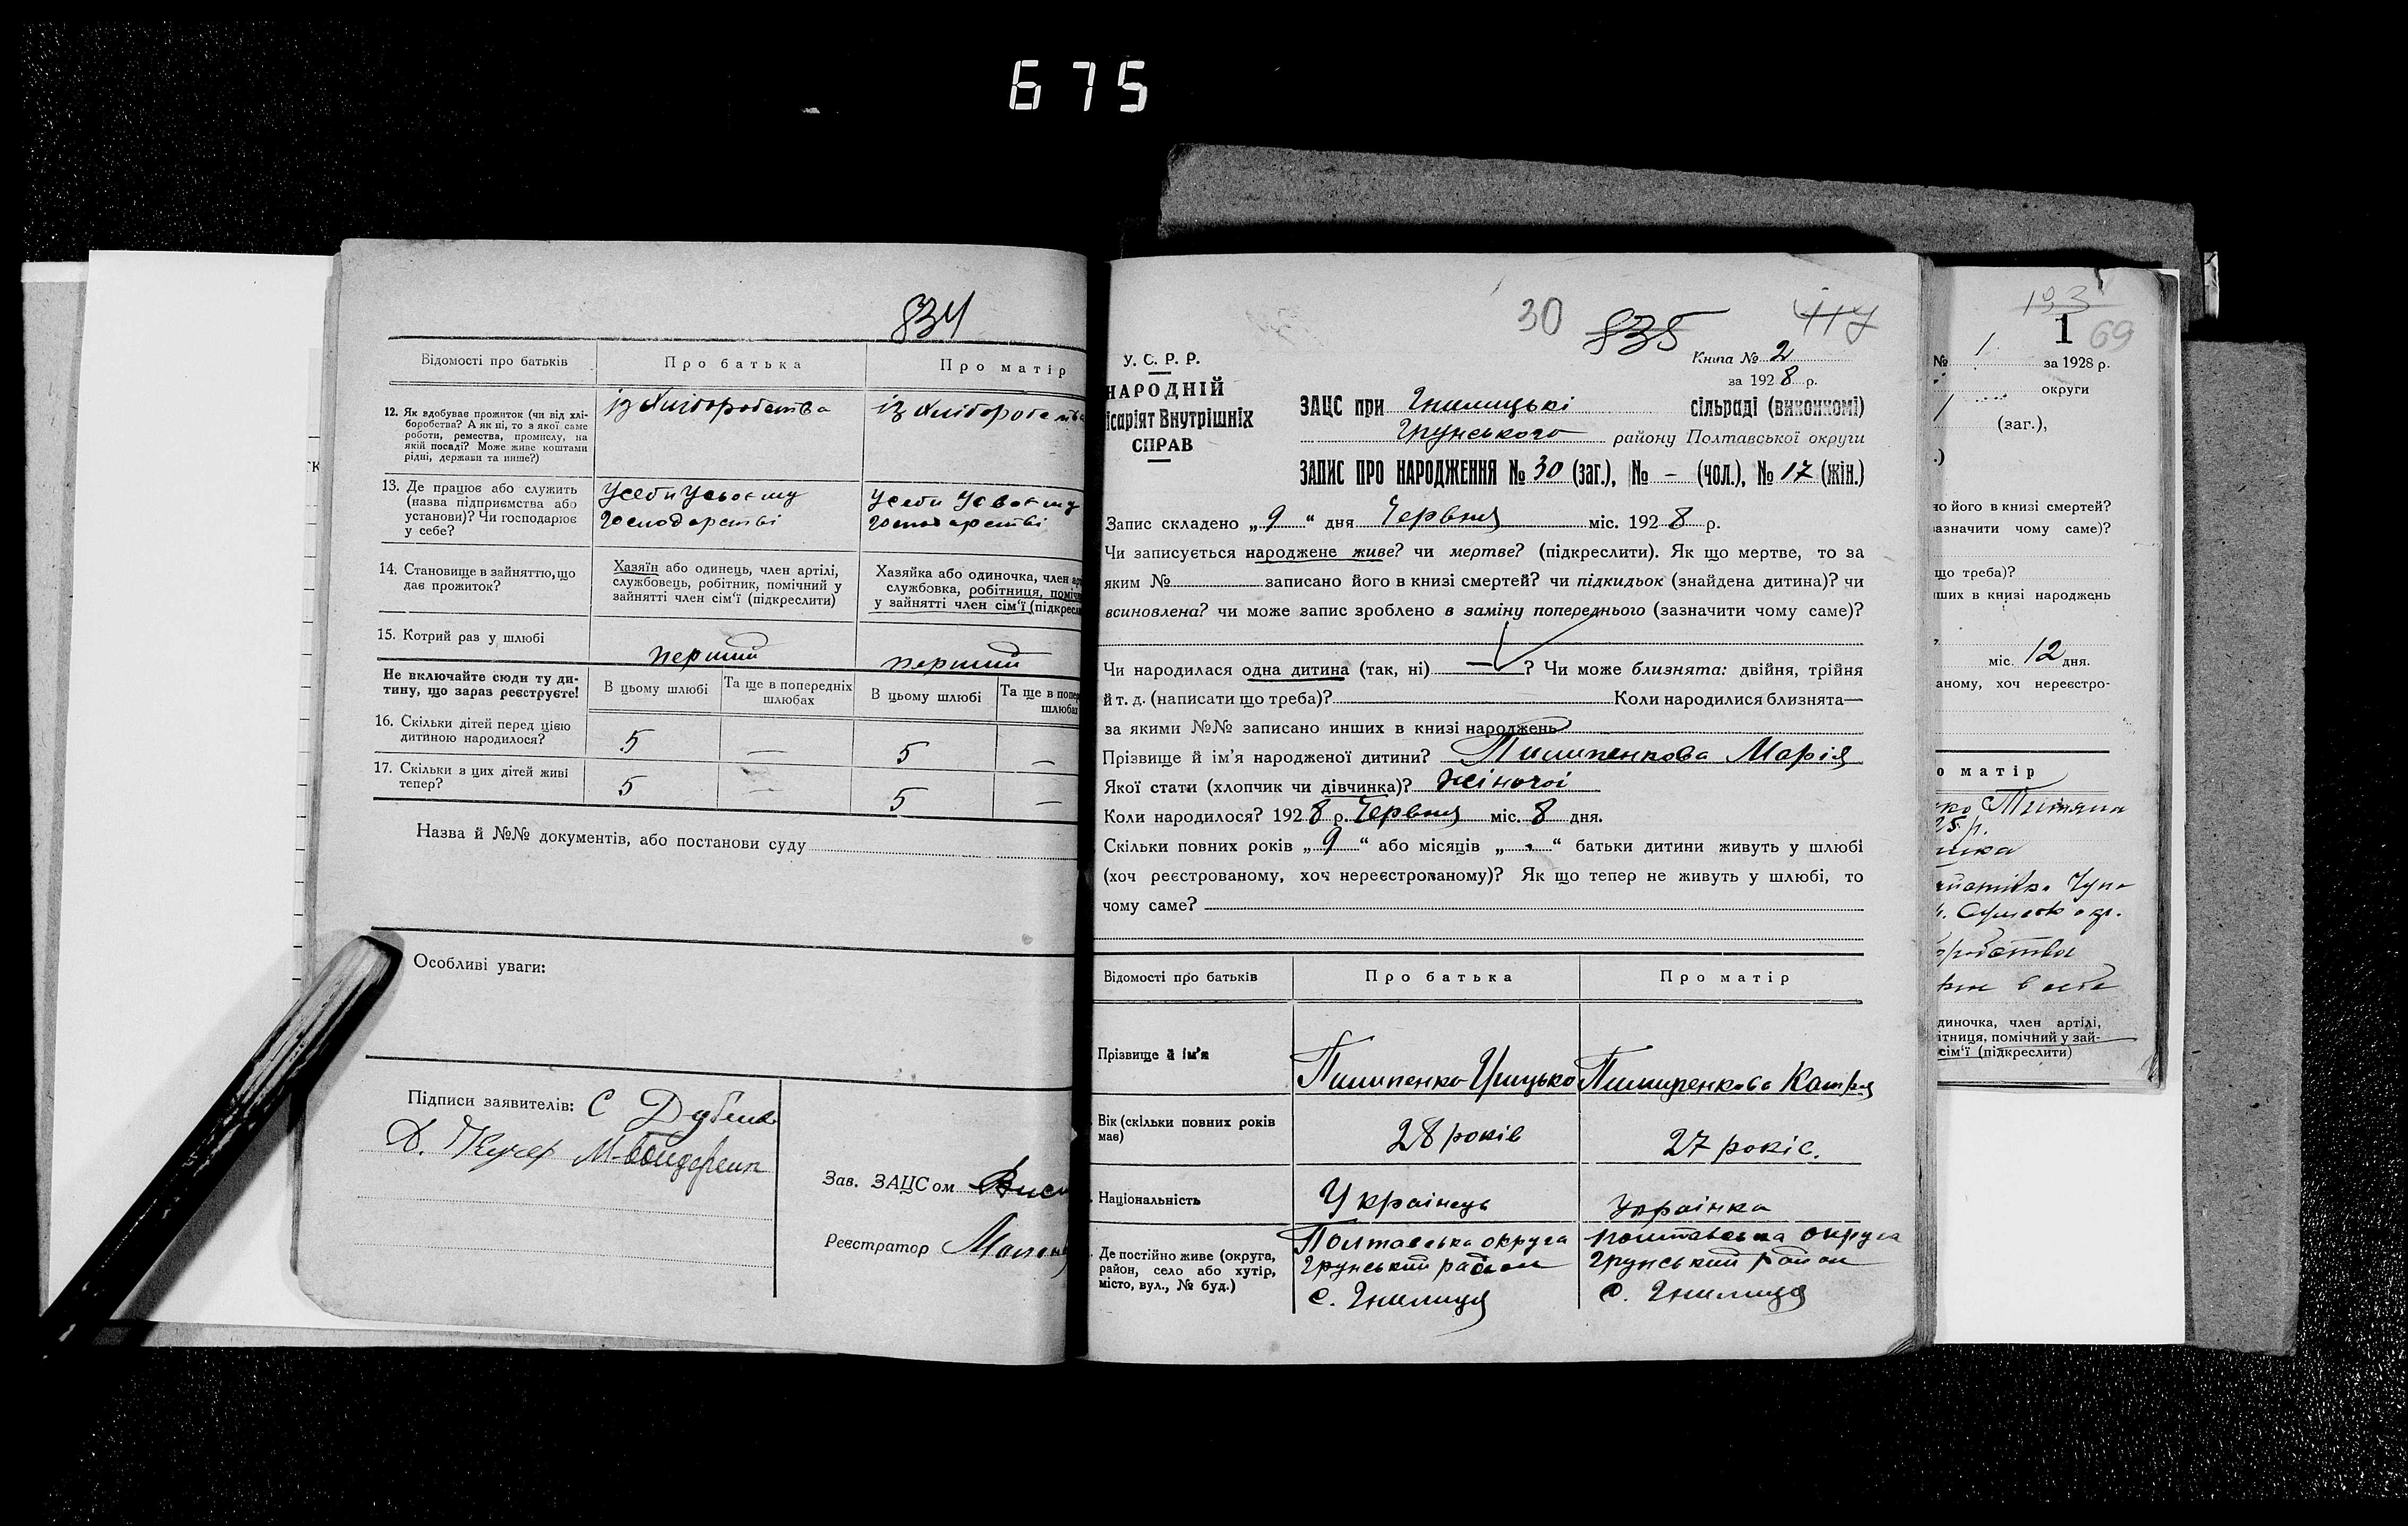 675
834
Відомості про батьків Про батька Про матір
12. Як здобуває прожиток (чи від хлі-
боробства? А як ні, то з якої саме
роботи, ремества, промислу, на
якій посаді? Може живе коштами
рідні, держави та инше?)
із хліборобства
із хліборобства
13. Де працює або служить
(назва підприємства або
установи)? Чи господарює
у себе?
У себи у своєму
господарстві
У себи у своєму
господарстві
14. Становище в зайняттю, що
дає прожиток?
Хазяїн або одинець, член артілі,
службовець, робітник, помічний у
зайнятті член сім'ї (підкреслити)
Хазяйка або одиночка, член ар
службовка, робітниця, поміч
у зайнятті член сім'ї (підкресл
15. Котрий раз у шлюбі
перший перший
Не включайте сюди ту ди-
тину, що зараз реєструєте!
В цьому шлюбі Та ще в попередніх
шлюбах
В цьому шлюбі Та ще в попер
шлюбах
16. Скільки дітей перед цією
дитиною народилося?
5 — 5 —
17. Скільки з цих дітей живі
тепер?
5 — 5 —
Назва й №№ документів, або постанови суду
Особливі уваги:
Підписи заявителів: С
Д. Кучер
Зав. ЗАЦСом
Реєстратор
30 835 417
У. С. Р. Р.
НАРОДНІЙ
ісаріят Внутрішніх
СПРАВ
Книга № 2
за 1928 р.
ЗАЦС при Гнилицькі сільраді (виконкомі)
Грунського району Полтавської округи
ЗАПИС ПРО НАРОДЖЕННЯ № 30 (заг.), № - (чол.), № 17 (жін.)
Запис складено „9“ дня Червня міс. 1928 р.
Чи записується народжене живе? чи мертве? (підкреслити). Як що мертве, то за
яким № записано його в книзі смертей? чи підкидьок (знайдена дитина)? чи
всиновлена? чи може запис зроблено в заміну попереднього (зазначити чому саме)?
Чи народилася одна дитина (так, ні) — ? Чи може близнята: двійня, трійня
й т. д. (написати що треба)? Коли народилися близнята—
за якими №№ записано инших в книзі народжень
Прізвище й ім'я народженої дитини? Пилипенкова Марія
Якої стати (хлопчик чи дівчинка)? жіночої
Коли народилося? 1928 р. Червня міс. 8 дня.
Скільки повних років „9“ або місяців „-“ батьки дитини живуть у шлюбі
(хоч реєстрованому, хоч нереєстрованому)? Як що тепер не живуть у шлюбі, то
чому саме?
Відомості про батьків Про батька Про матір
Прізвище й ім'я
Пилипенко Грицько Пилипенкова Катря
Вік (скільки повних років
має)
28 років 27 років.
Національність
Українець Українка
Де постійно живе (округа,
район, село або хутір,
місто, вул., № буд.)
Полтавська округа
Грунський район
с. Гнилиця
Полтавська округа
Грунський район
с. Гнилиця
193
1 69
№ 1 за 1928 р.
округи
(заг.),
но його в книзі смертей?
зазначити чому саме)?
що треба)?
нших в книзі народжень
міс. 12 дня.
аному, хоч нереєстро-
о матір
Тетяна
25 р.
диночка, член артілі,
ітниця, помічний у зай-
сім'ї (підкреслити)